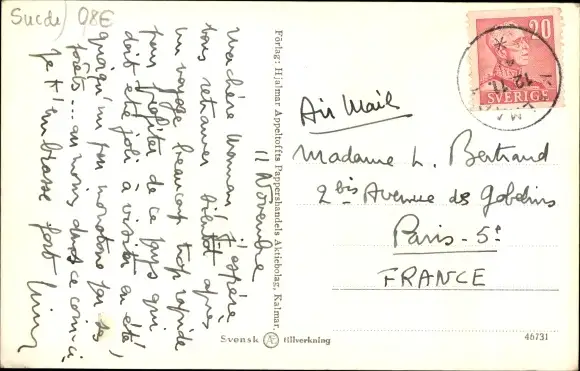 Suède/ 08E
11 Novembre
Ma chère Maman, j'espère
vous retrouver bientôt après
un voyage beaucoup trop rapide
pour profiter de ce pays qui
doit être joli à visiter en été,
quoiqu'un peu monotone par ses
forêts... au moins dans ce coin-ci.
Je t'embrasse fort
Förlag: Hjalmar Appeltoffts Pappershandels Aktiebolag, Kalmar.
Svensk AE tillverkning
20
SVERIGE
Air Mail
Madame L. Bertrand
2 bis Avenue des Gobelins
Paris - 5e
FRANCE
46731